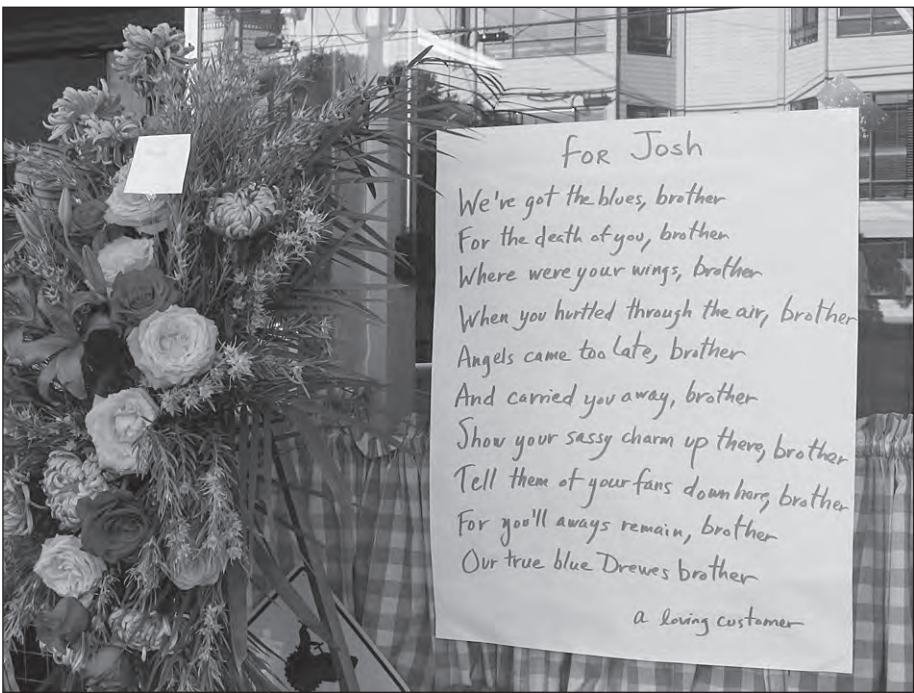 For Josh
We've got the blues, brother
For the death of you, brother
Where were your wings, brother
When you hurtled through the air, brother
Angels came too late, brother
And carried you away, brother
Show your sassy charm up there, brother
Tell them of your fans down here, brother
For you'll aways remain, brother
Our true blue Drewes brother
a loving customer